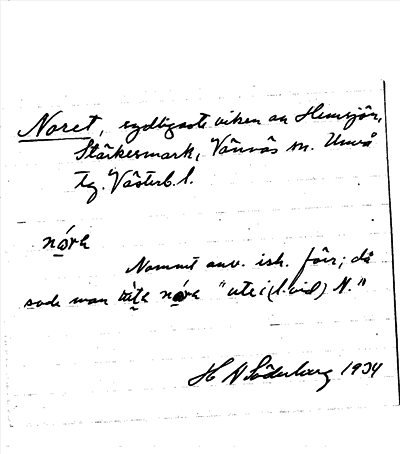 Noret, sydligaste viken av Hemsjön,
Stärkesmark, Vännäs sn. Umeå
tg. Västerb. l.
nórə
Namnet anv. ish. förr; då
sade man nórə "ute i (l. vid) N."
H N Söderberg 1934